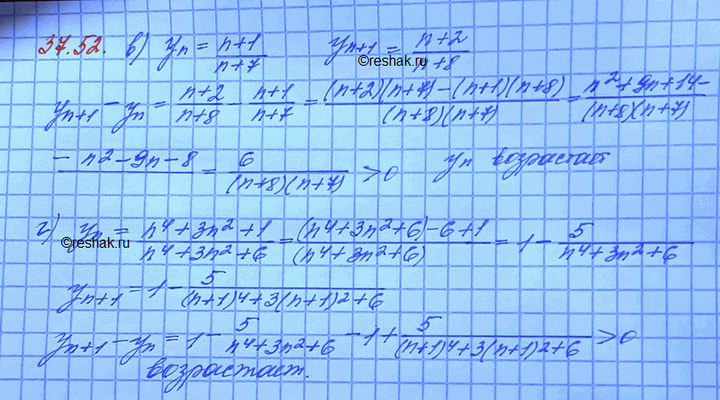 37.52. в) yₙ = (n+1)/(n+7)   yₙ₊₁ = (n+2)/(n+8)
©reshak.ru
yₙ₊₁ - yₙ = (n+2)/(n+8) - (n+1)/(n+7) = ((n+2)(n+7)-(n+1)(n+8))/((n+8)(n+7)) = n²+9n+14-/(n+8)(n+7)
- n²-9n-8 = 6/((n+8)(n+7)) >0   yₙ возрастает
г) yₙ = (n⁴+3n²+1)/(n⁴+3n²+6) = ((n⁴+3n²+6)-6+1)/(n⁴+3n²+6) = 1 - 5/(n⁴+3n²+6)
©reshak.ru
yₙ₊₁ = 1 - 5/((n+1)⁴+3(n+1)²+6)
yₙ₊₁ - yₙ = 1 - 5/(n⁴+3n²+6) - 1 + 5/((n+1)⁴+3(n+1)²+6) >0
возрастает.